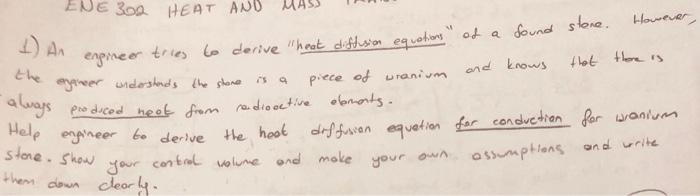 ENE 302 HEAT AND MASS
1) An engineer tries to derive "heat diffusion equations" of a found stone. However,
the engineer understands the stone is a piece of uranium and knows that there is
always produced heat from radioactive elements.
Help engineer to derive the heat diffusion equation for conduction for uranium
stone. Show your control volume and make your own assumptions and write
them down clearly.